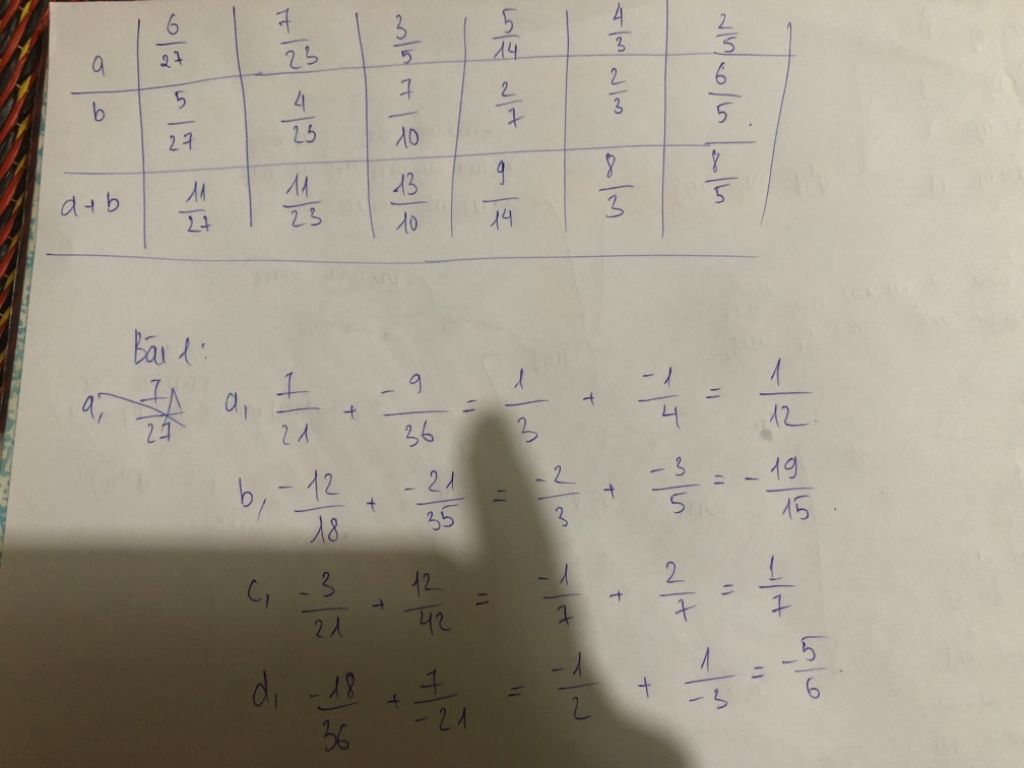 a | 6/27 | 7/23 | 3/5 | 5/14 | 4/3 | 2/5
b | 5/27 | 4/23 | 7/10 | 2/7 | 2/3 | 6/5.
a+b | 11/27 | 11/23 | 13/10 | 9/14 | 8/3 | 8/5
Bài 1:
a, 7/27 a, 7/21 + -9/36 = 1/3 + -1/4 = 1/12.
b, -12/18 + -21/35 = -2/3 + -3/5 = -19/15.
c, -3/21 + 12/42 = -1/7 + 2/7 = 1/7
d, -18/36 + 7/-21 = -1/2 + 1/-3 = -5/6.